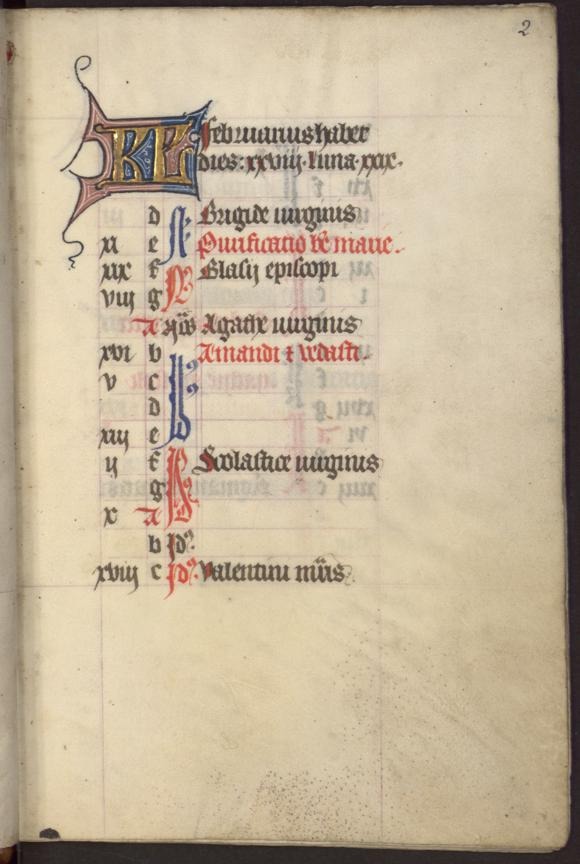 2
KL februarius habet
dies: xxviij. luna xxix.
d Brigide uirginis
xi e Purificatio be marie.
xix f Blasij episcopi
viij g N
a Agathe uirginis
xvi b Amandi & vedasti.
v c
d
xiij e
ij f Scolastice uirginis
g
x a
b Id9
xviij c Id9 Valentini mris